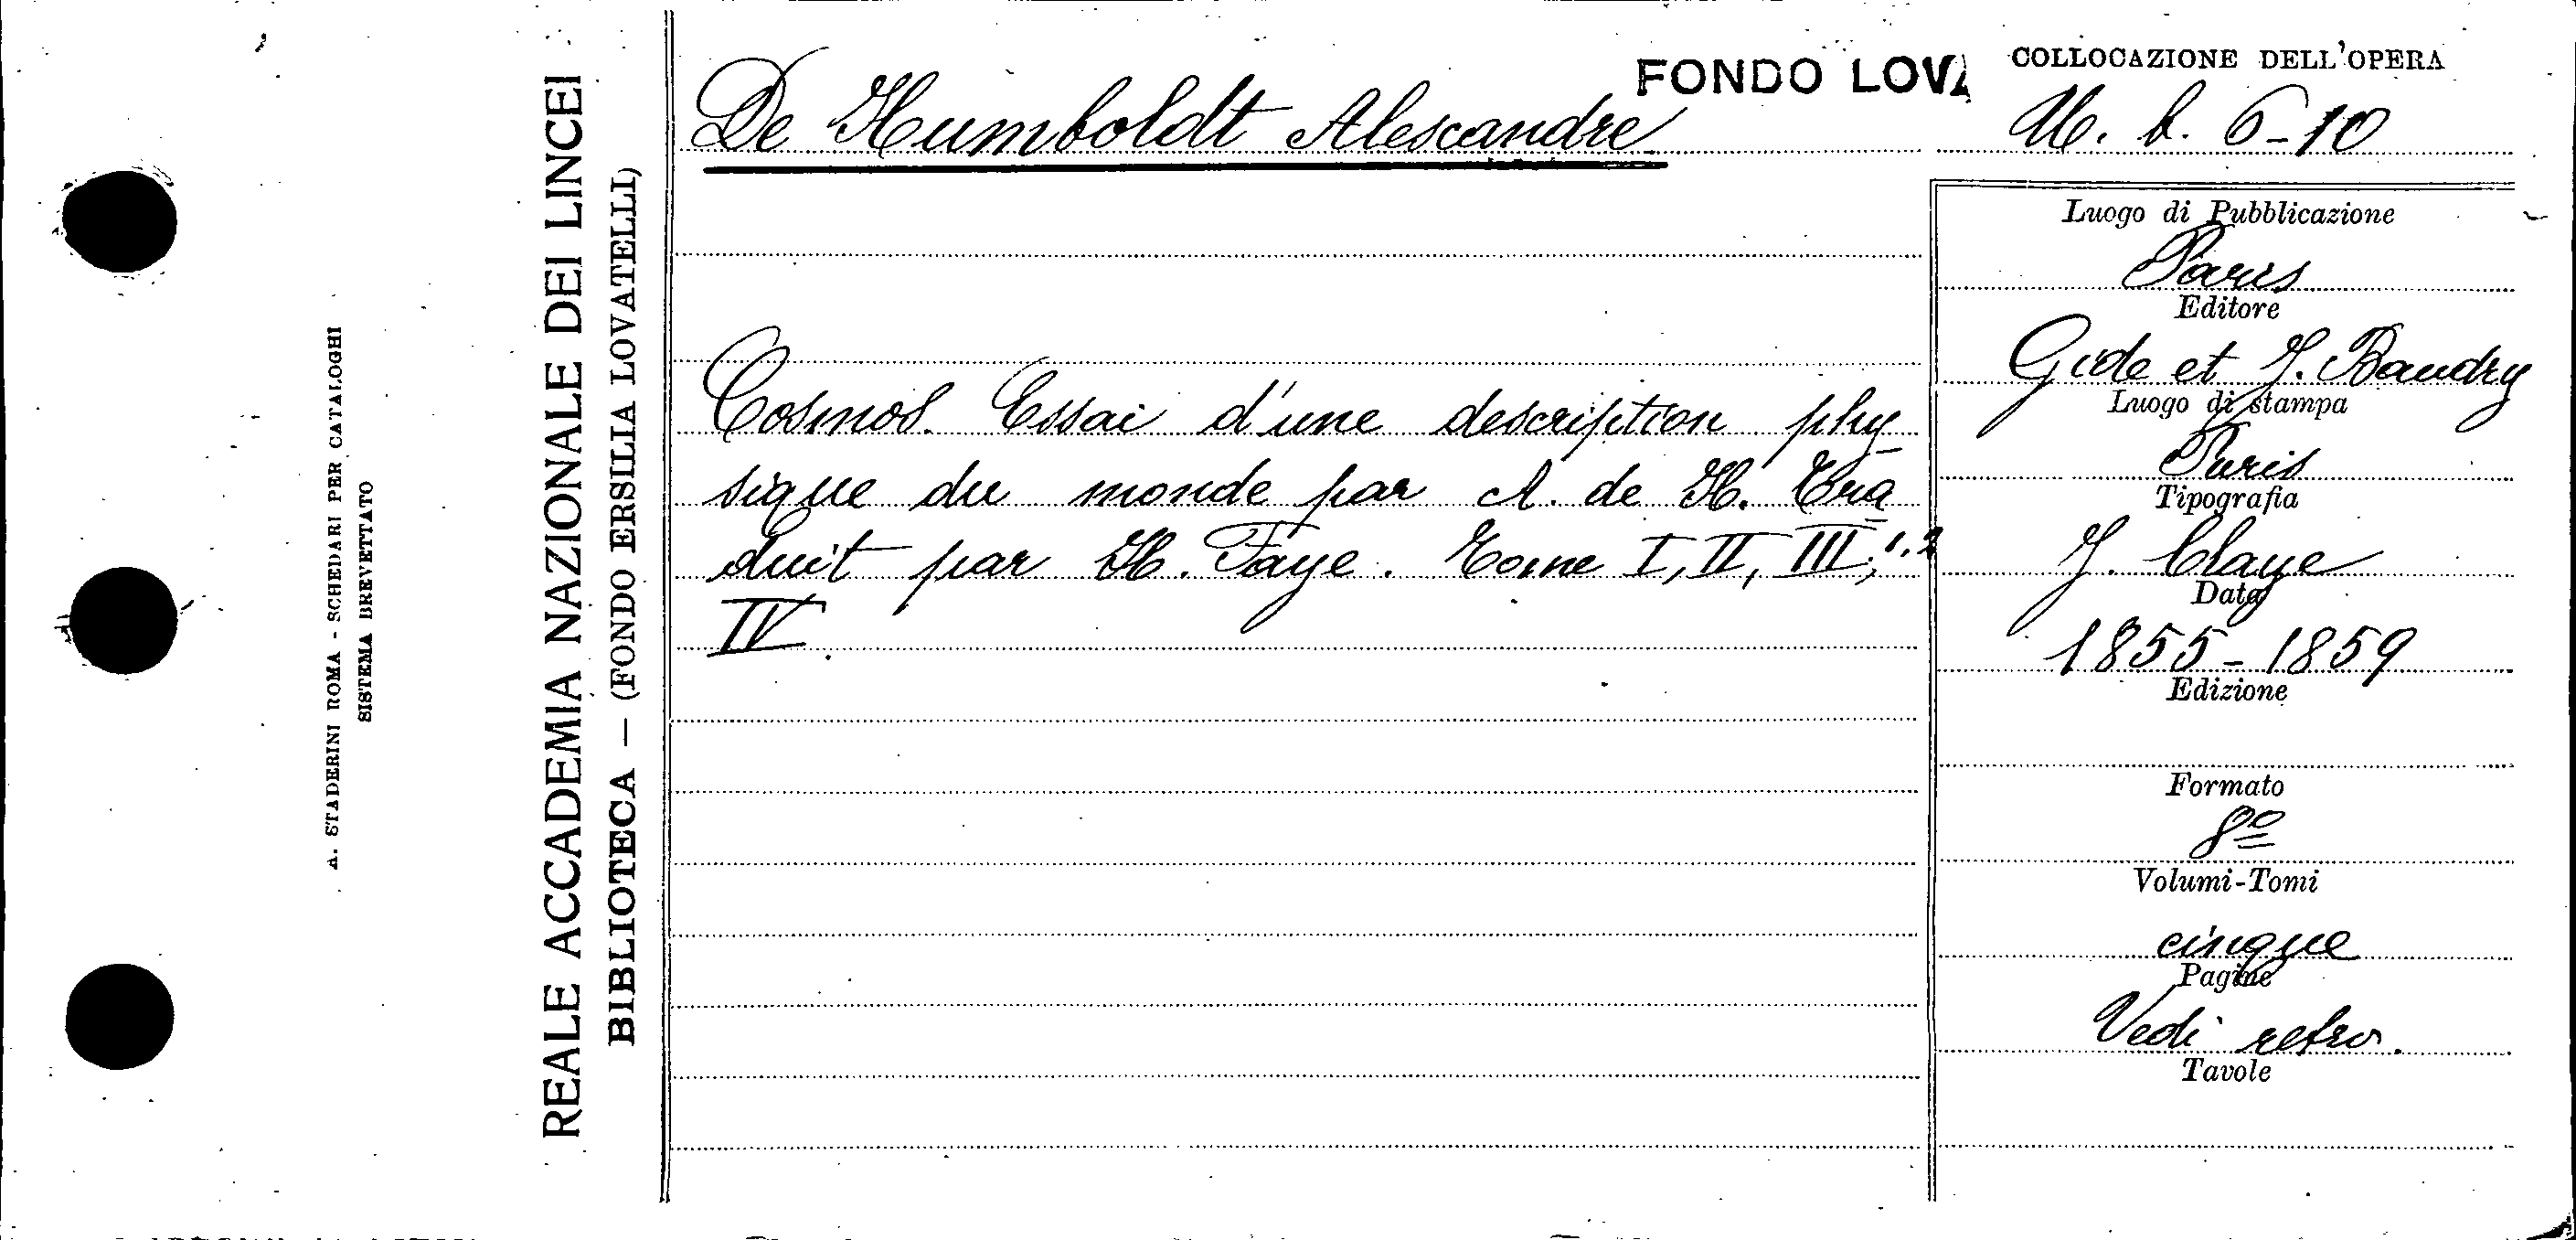 A. STADERINI ROMA - SCHEDARI PER CATALOGHI
SISTEMA BREVETTATO
REALE ACCADEMIA NAZIONALE DEI LINCEI
BIBLIOTECA — (FONDO ERSILIA LOVATELLI)
FONDO LOVA
De Humboldt Alexandre
Cosmos. Essai d'une description phy-
sique du monde par A. de H. Tra-
duit par H. Faye. Tome I, II, III, 1.2
IV.
COLLOCAZIONE DELL'OPERA
M. b. 6-10
Luogo di Pubblicazione
Paris
Editore
Gide et J. Baudry
Luogo di stampa
Paris
Tipografia
J. Claye
Data
1855-1859
Edizione
Formato
8º
Volumi-Tomi
cinque
Pagine
Vedi retro.
Tavole